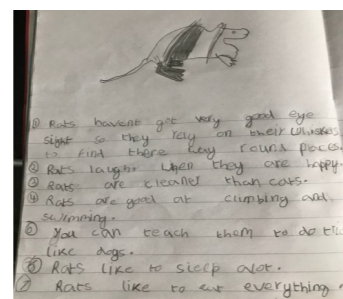 ① Rats havent got very good eye
sight so they rely on their whiskes
to find there way round places.
② Rats laugh when they are happy.
③ Rats are cleaner than cats.
④ Rats are good at climbing and
swimming.
⑤ You can teach them to do
like dogs.
⑥ Rats like to sleep alot.
⑦ Rats like to eat everything